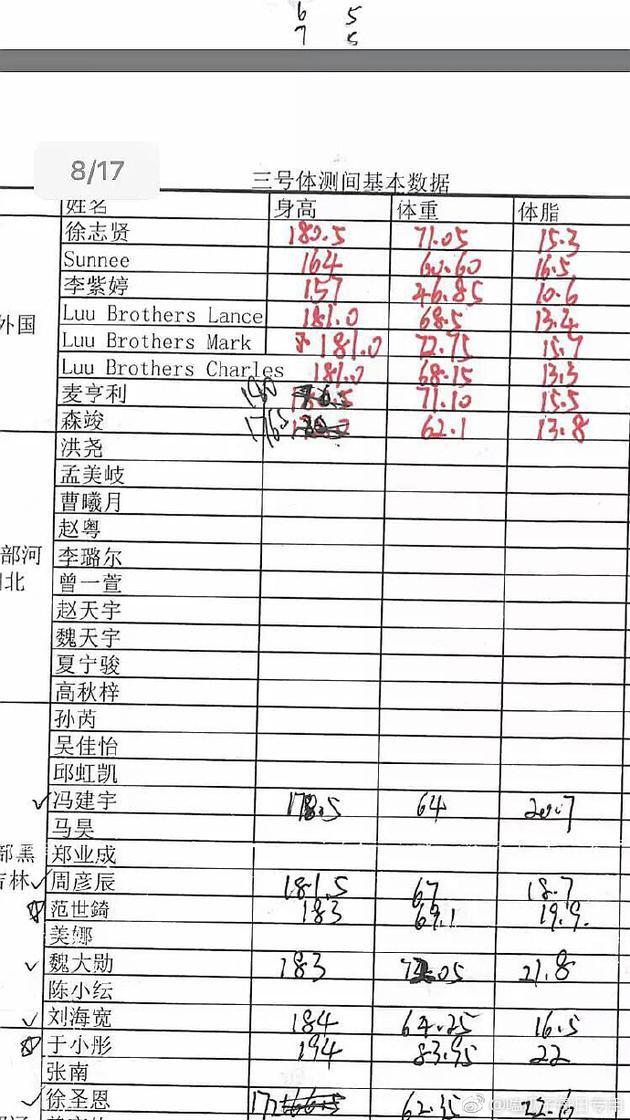 6 5
7 5
8/17
三号体测间基本数据
姓名 身高 体重 体脂
徐志贤 180.5 71.05 15.3
Sunnee 164 60.60 16.5
李紫婷 157 46.85 10.6
外国
Luu Brothers Lance 181.0 68.5 13.4
Luu Brothers Mark 181.0 72.75 15.7
Luu Brothers Charles 181.0 68.15 13.3
麦亨利 180 71.10 15.5
森竣 176.5 62.1 13.8
洪尧
孟美岐
曹曦月
赵粤
部河 李璐尔
北 曾一萱
赵天宇
魏天宇
夏宁骏
高秋梓
孙芮
吴佳怡
邱虹凯
冯建宇 178.5 64 20.7
马昊
部黑 郑业成
吉林 周彦辰 181.5 67 18.7
范世錡 183 69.1 19.9.
美娜
魏大勋 183 05 21.8
陈小纭
刘海宽 184 64.25 16.5
于小彤 194 83.95 22
张南
徐圣恩 172 62.35